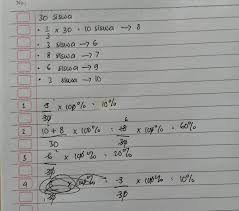 No:
30 siswa
• 1/3 x 30 = 10 siswa → 8
• 3 siswa → 6
• 8 siswa → 7
• 6 siswa → 9
• 3 siswa → 10
1 3/30 x 100% = 10%
2 10 + 8/30 x 100% = 18/30 x 100% = 60%
3 6/30 x 100% = 20%
4 100% = 3/30 x 100% = 10%